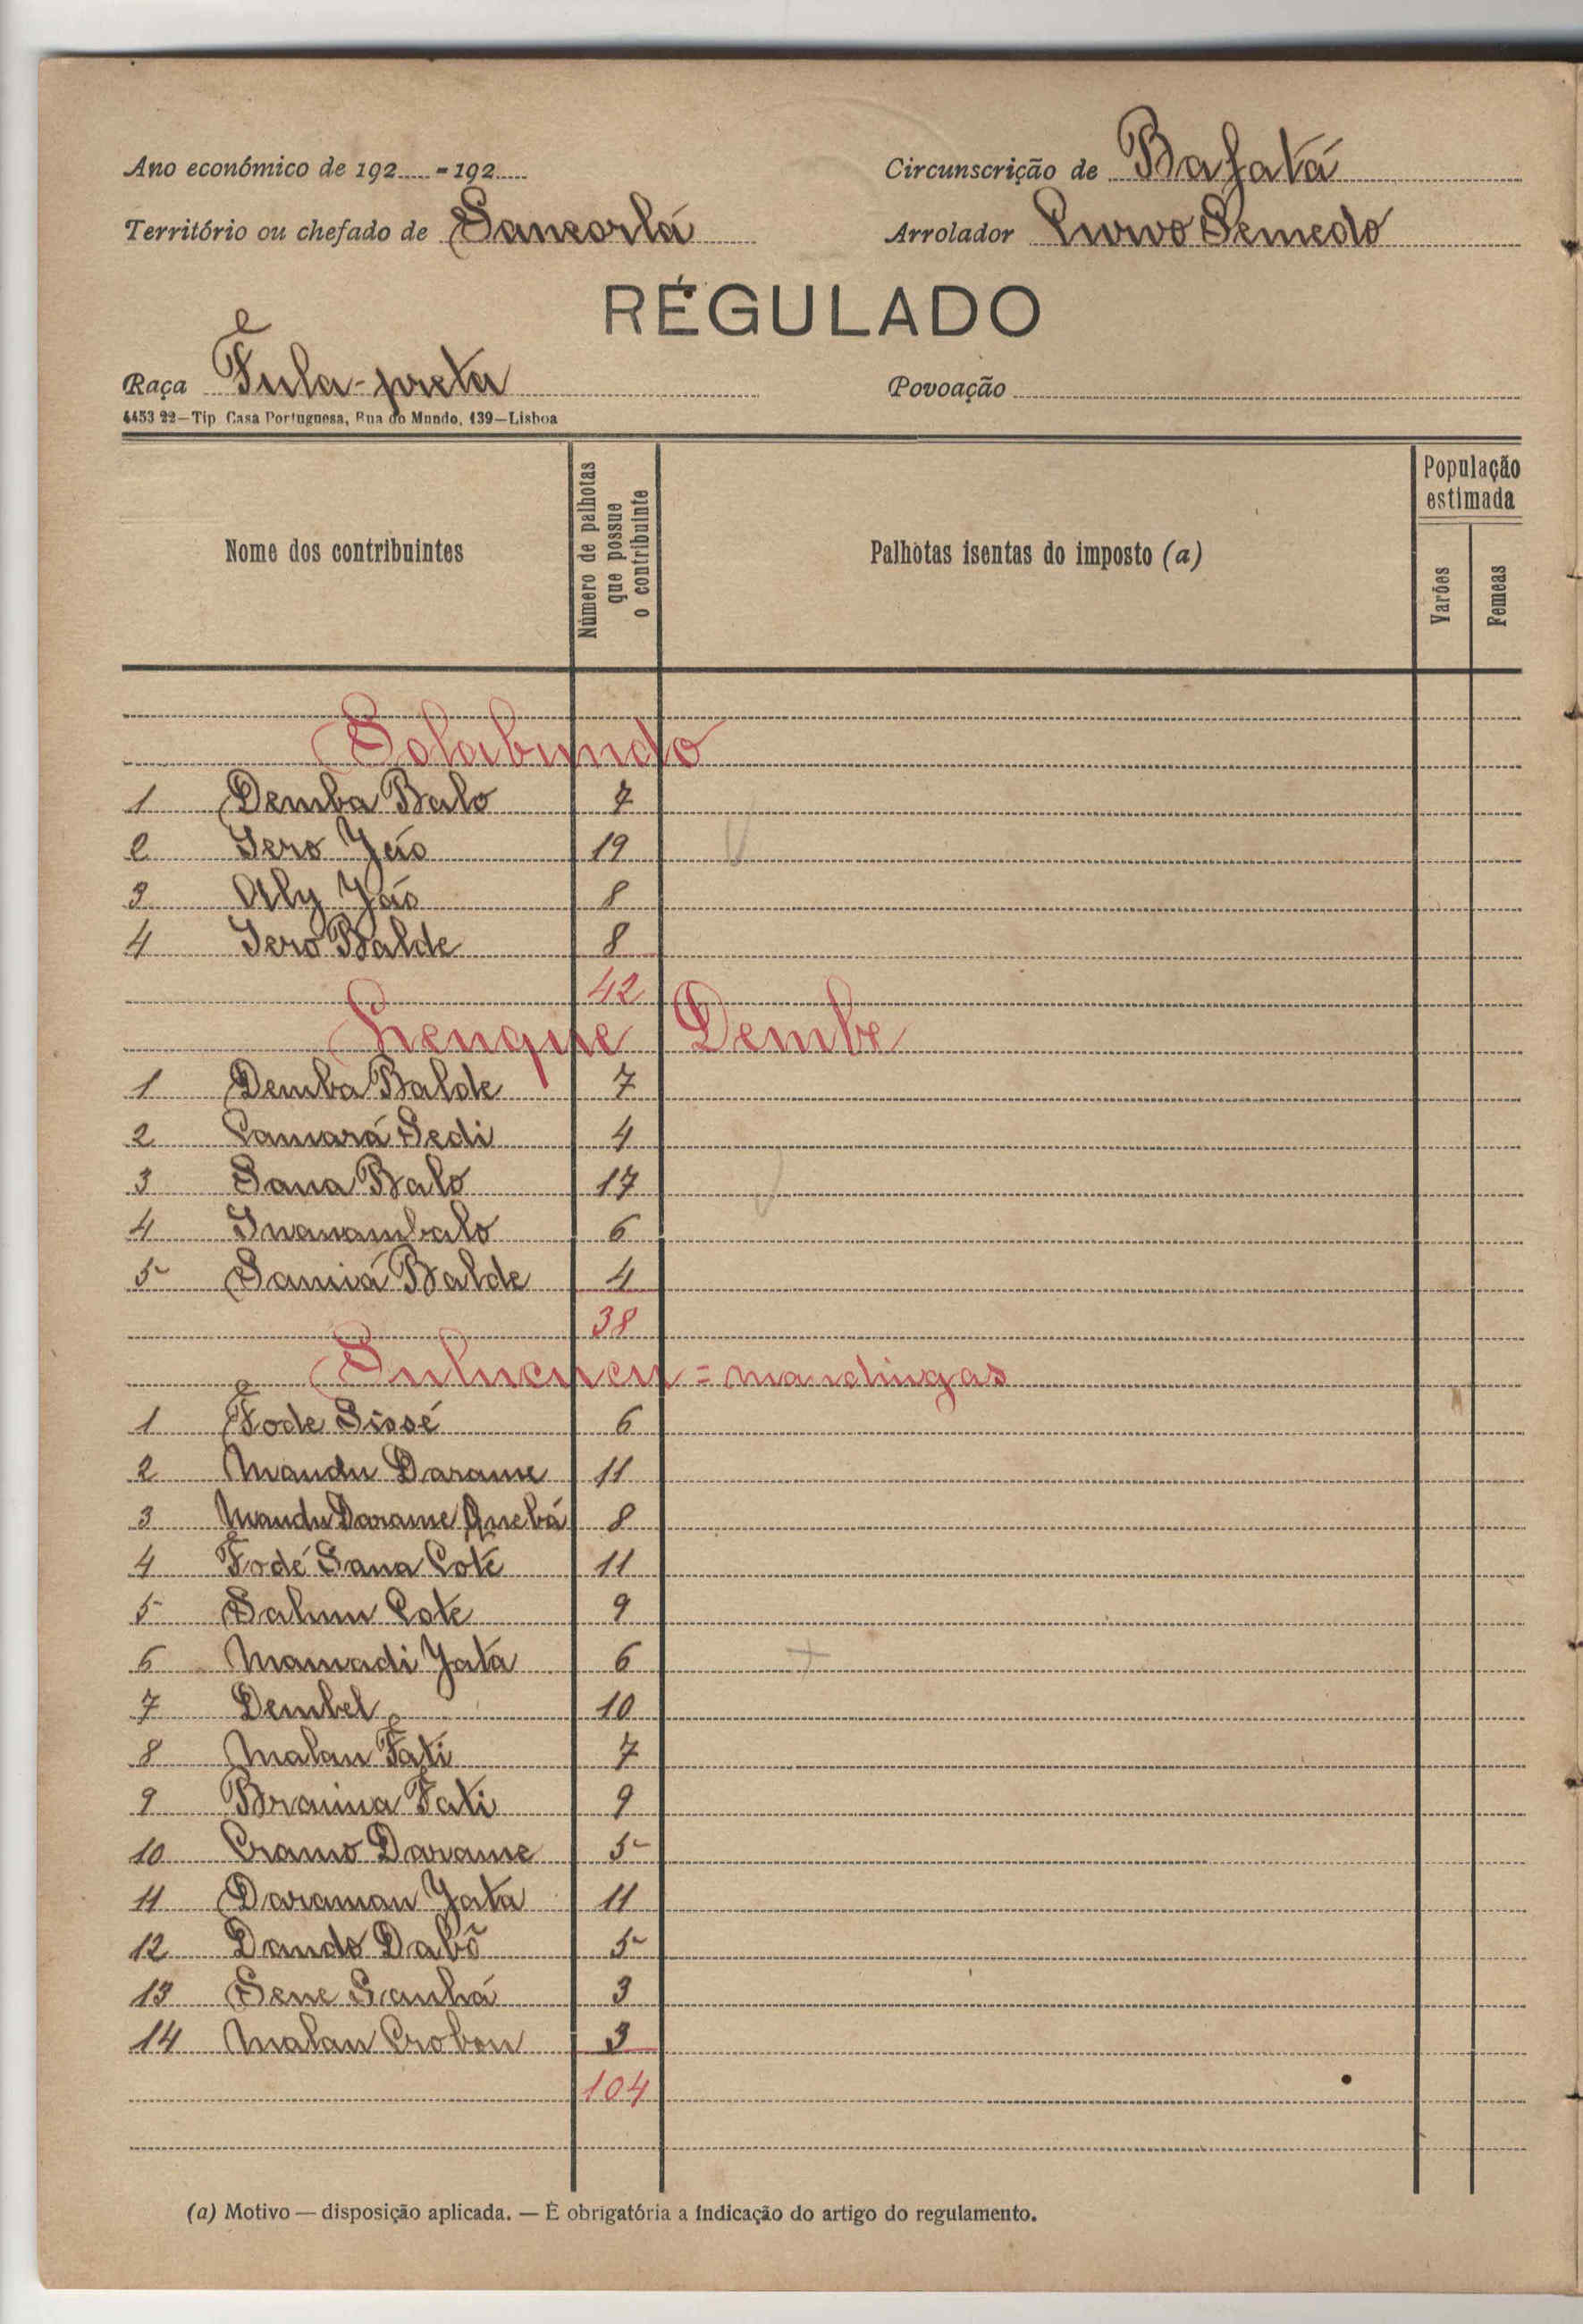 Ano económico de 192..... - 192.....
Circunscrição de Bafatá
Território ou chefado de Sancorlá
Arrolador Curvo Semedo
RÉGULADO
Raça Fula-preta
Povoação
4453 22—Tip Casa Portuguesa, Rua do Mundo, 139—Lisboa
Nome dos contribuintes
Número de palhotas que possue o contribuinte
Palhotas isentas do imposto (a)
População estimada
Varões
Femeas
Solabundo
1 Demba Balo 7
2 Iero Jáo 19
3 Aly Jáo 8
4 Iero Balde 8
42
Lenque Dembe
1 Demba Balde 7
2 Camará Sedi 4
3 Sana Balo 17
4 6
5 Samiá Balde 4
38
Sulucucu = mandingas
1 Fode Sissé 6
2 Mandu Darame 11
3 Mandu Darame Quebá 8
4 Fodé Sana Cote 11
5 Salum Cote 9
6 Mamadi Jata 6
7 Dembel 10
8 Malan Fati 7
9 Braima Fati 9
10 Cramo Darame 5
11 Daraman Jata 11
12 Dando Dabõ 5
13 Sene Sanhá 3
14 Malan 3
104
(a) Motivo — disposição aplicada. — É obrigatória a indicação do artigo do regulamento.